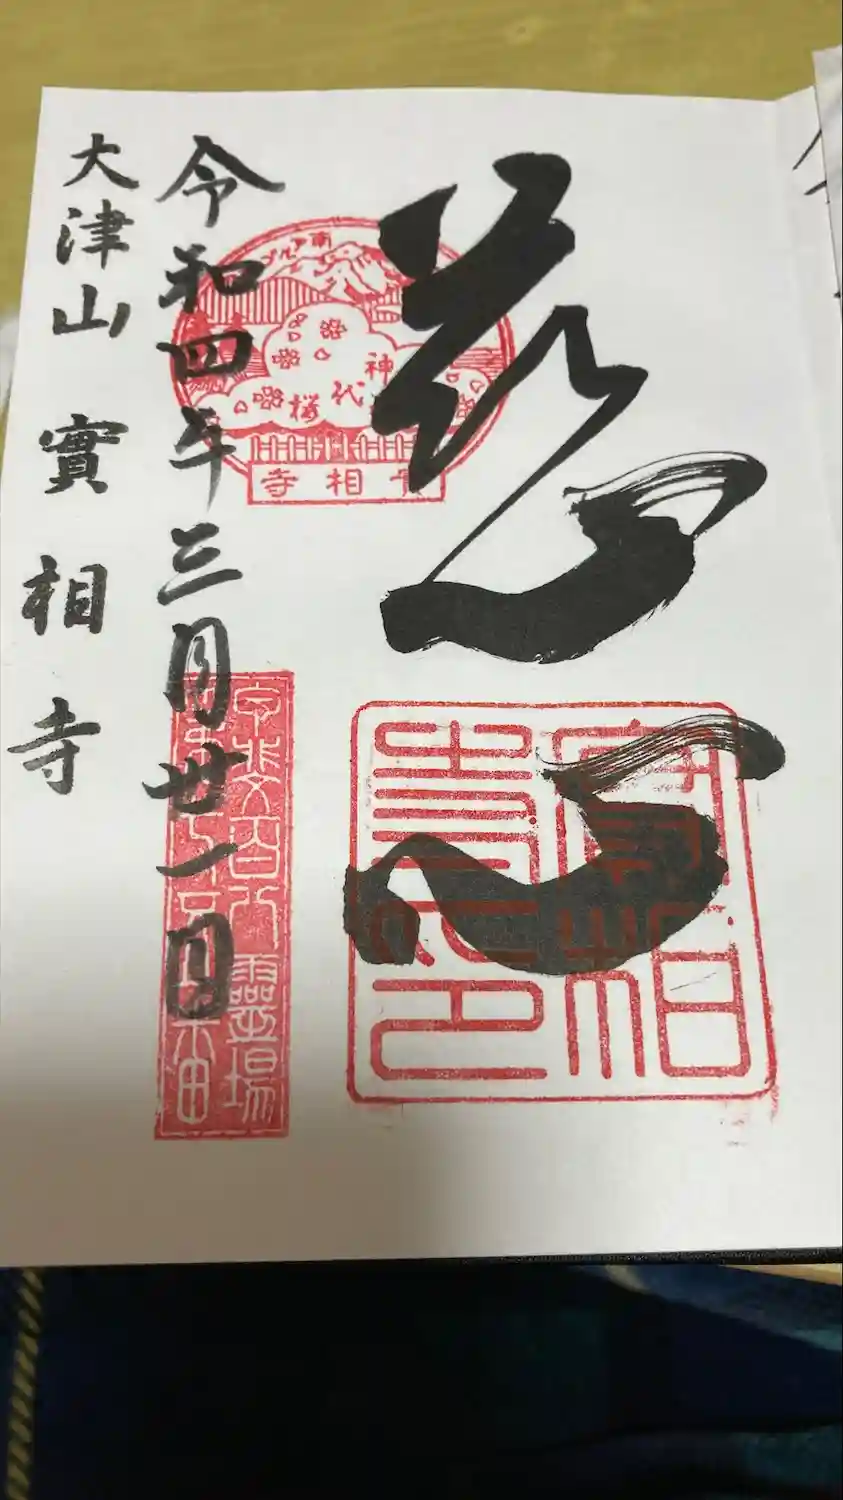 慈心
令和四年三月廿一日
大津山 實相寺
南アルプス
神代桜
實相寺
實相
寺印
靈場